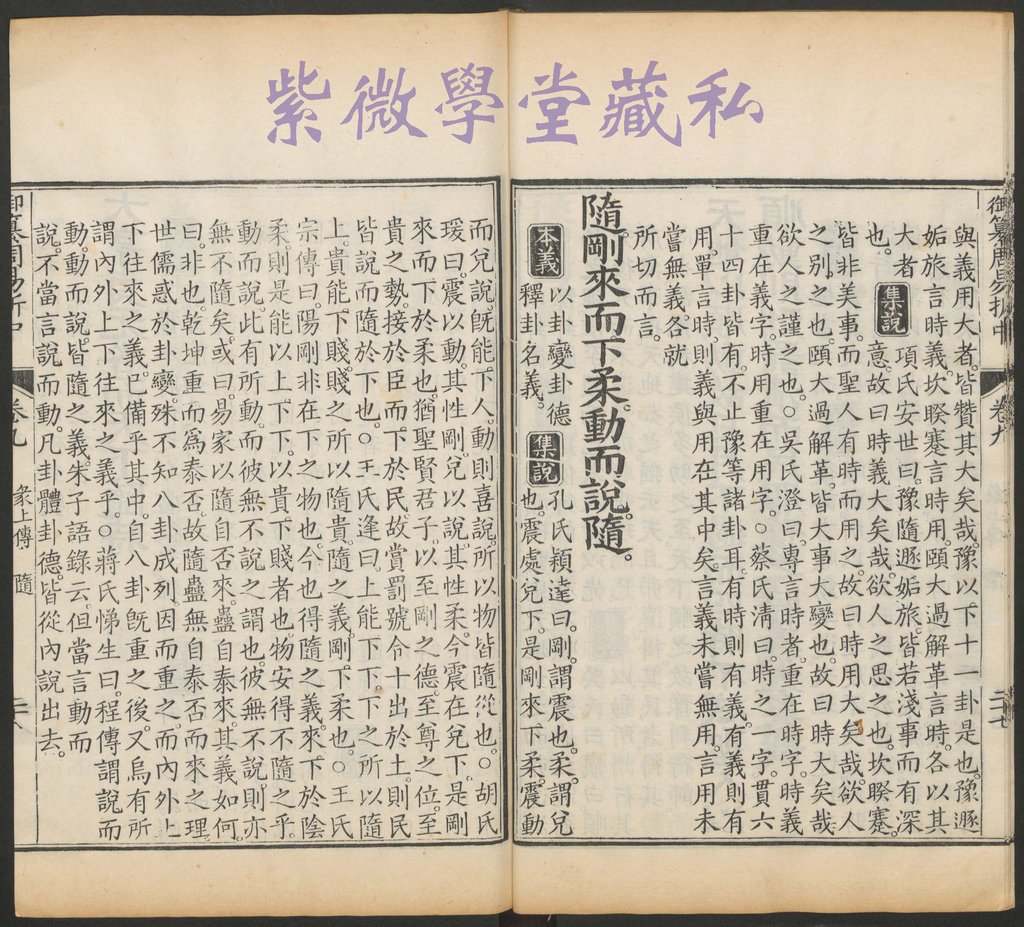 紫微學堂藏私
御纂周易折中 卷九 二十七
與義用大者。皆贊其大矣哉。豫以下十一卦是也。豫遯
姤旅言時義。坎睽蹇言時用。頤大過解革言時。各以其
大者
也。
集說
項氏安世曰。豫隨遯姤旅。皆若淺事而有深
意。故曰時義大矣哉。欲人之思之也。坎睽蹇。
皆非美事。而聖人有時而用之。故曰時用大矣哉。欲人
之別之也。頤大過解革。皆大事大變也。故曰時大矣哉
欲人之謹之也。○吳氏澄曰。專言時者。重在時字。時義
重在義字。時用重在用字。○蔡氏清曰。時之一字。貫六
十四卦皆有。不止豫等諸卦耳。有時則有義。有義則有
用。單言時。則義與用在其中矣。言義未嘗無用。言用未
嘗無義。各就
所切而言。
隨。剛來而下柔。動而說。隨。
本義
以卦變卦德。
釋卦名義。
集說
孔氏穎達曰。剛。謂震也。柔。謂兌
也。震處兌下。是剛來下柔。震動
而兌說。旣能下人。動則喜說。所以物皆隨從也。○胡氏
瑗曰。震以動。其性剛。兌以說。其性柔。今震在兌下。是剛
來而下於柔也。猶聖賢君子。以至剛之德。至尊之位。至
貴之勢。接於臣而下於民。故賞罰號令十出於士。則民
皆說而隨於下也。○王氏逢曰。上能下下。下之所以隨
上。貴能下賤。賤之所以隨貴。隨之義。剛下柔也。○王氏
宗傳曰。陽剛非在下之物也。今也得隨之義。來下於陰
柔。則是能以上下下。以貴下賤者也。物安得不隨之乎。
動而說。此有所動。而彼無不說之謂也。彼無不說。則亦
無不隨矣。或曰。易家以隨自否來。蠱自泰來。其義如何。
曰。非也。乾坤重而爲泰否。故隨蠱無自泰否而來之理
世儒惑於卦變。殊不知八卦成列。因而重之。而內外上
下往來之義。已備乎其中。自八卦旣重之後。又烏有所
謂內外上下往來之義乎。○蔣氏悌生曰。程傳謂說而
動。動而說。皆隨之義。朱子語錄云。但當言動而
說。不當言說而動。凡卦體卦德。皆從內說出去。
御纂周易折中 卷九 彖上傳 隨 二十八